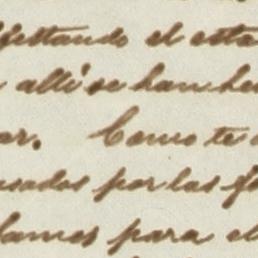 festando el esta
allí se han he
ar. Como te
sados por las f
lames para el